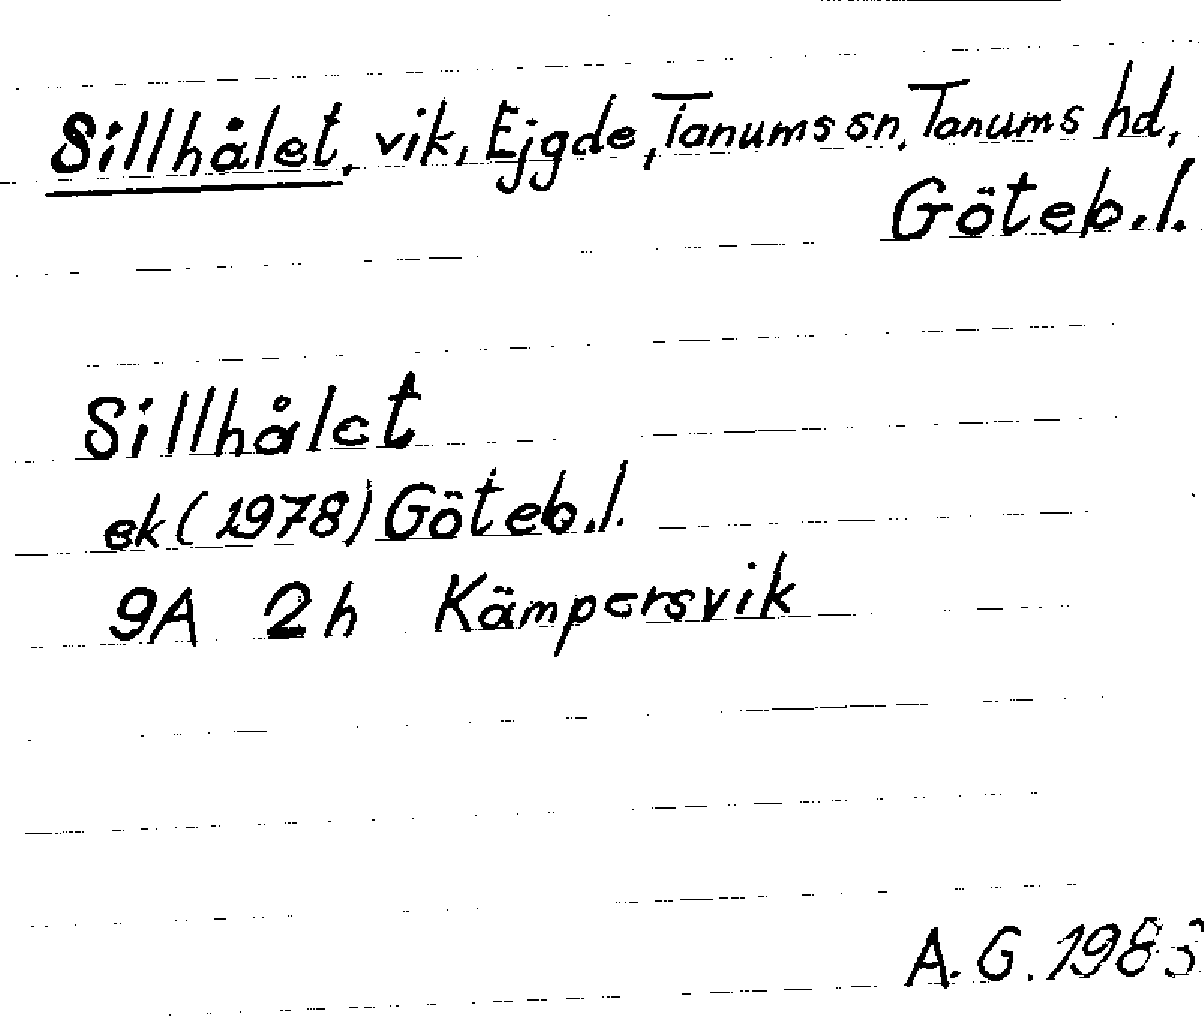 Sillhålet, vik, Ejgde, Tanums sn, Tanums hd,
Göteb.l.
Sillhålet
ek (1978) Göteb.l.
9A 2h Kämpersvik
A.G. 1983